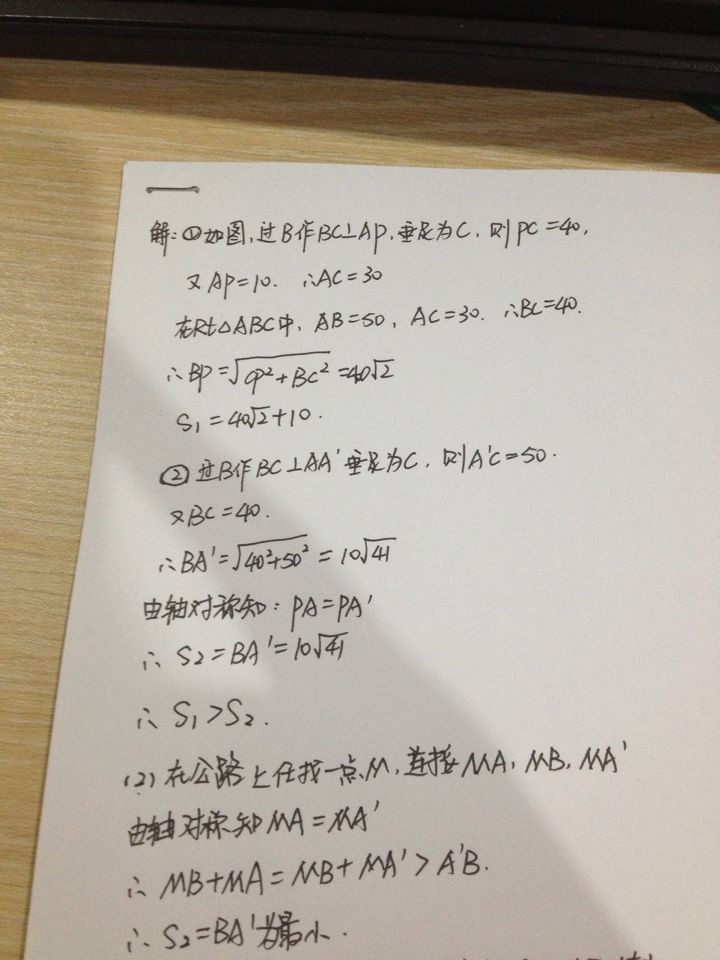 解:①如图,过B作BC⊥AP,垂足为C,则PC=40,
又AP=10. ∴AC=30
在Rt△ABC中,AB=50,AC=30. ∴BC=40.
∴BP=√CP²+BC² =40√2
S₁=40√2+10.
②过B作BC⊥AA'垂足为C,则A'C=50.
又BC=40.
∴BA'=√40²+50² =10√41
由轴对称知:PA=PA'
∴S₂=BA'=10√41
∴S₁>S₂.
(2)在公路上任找一点M,连接MA,MB,MA'
由轴对称知MA=MA'
∴MB+MA=MB+MA'>A'B.
∴S₂=BA'为最小.